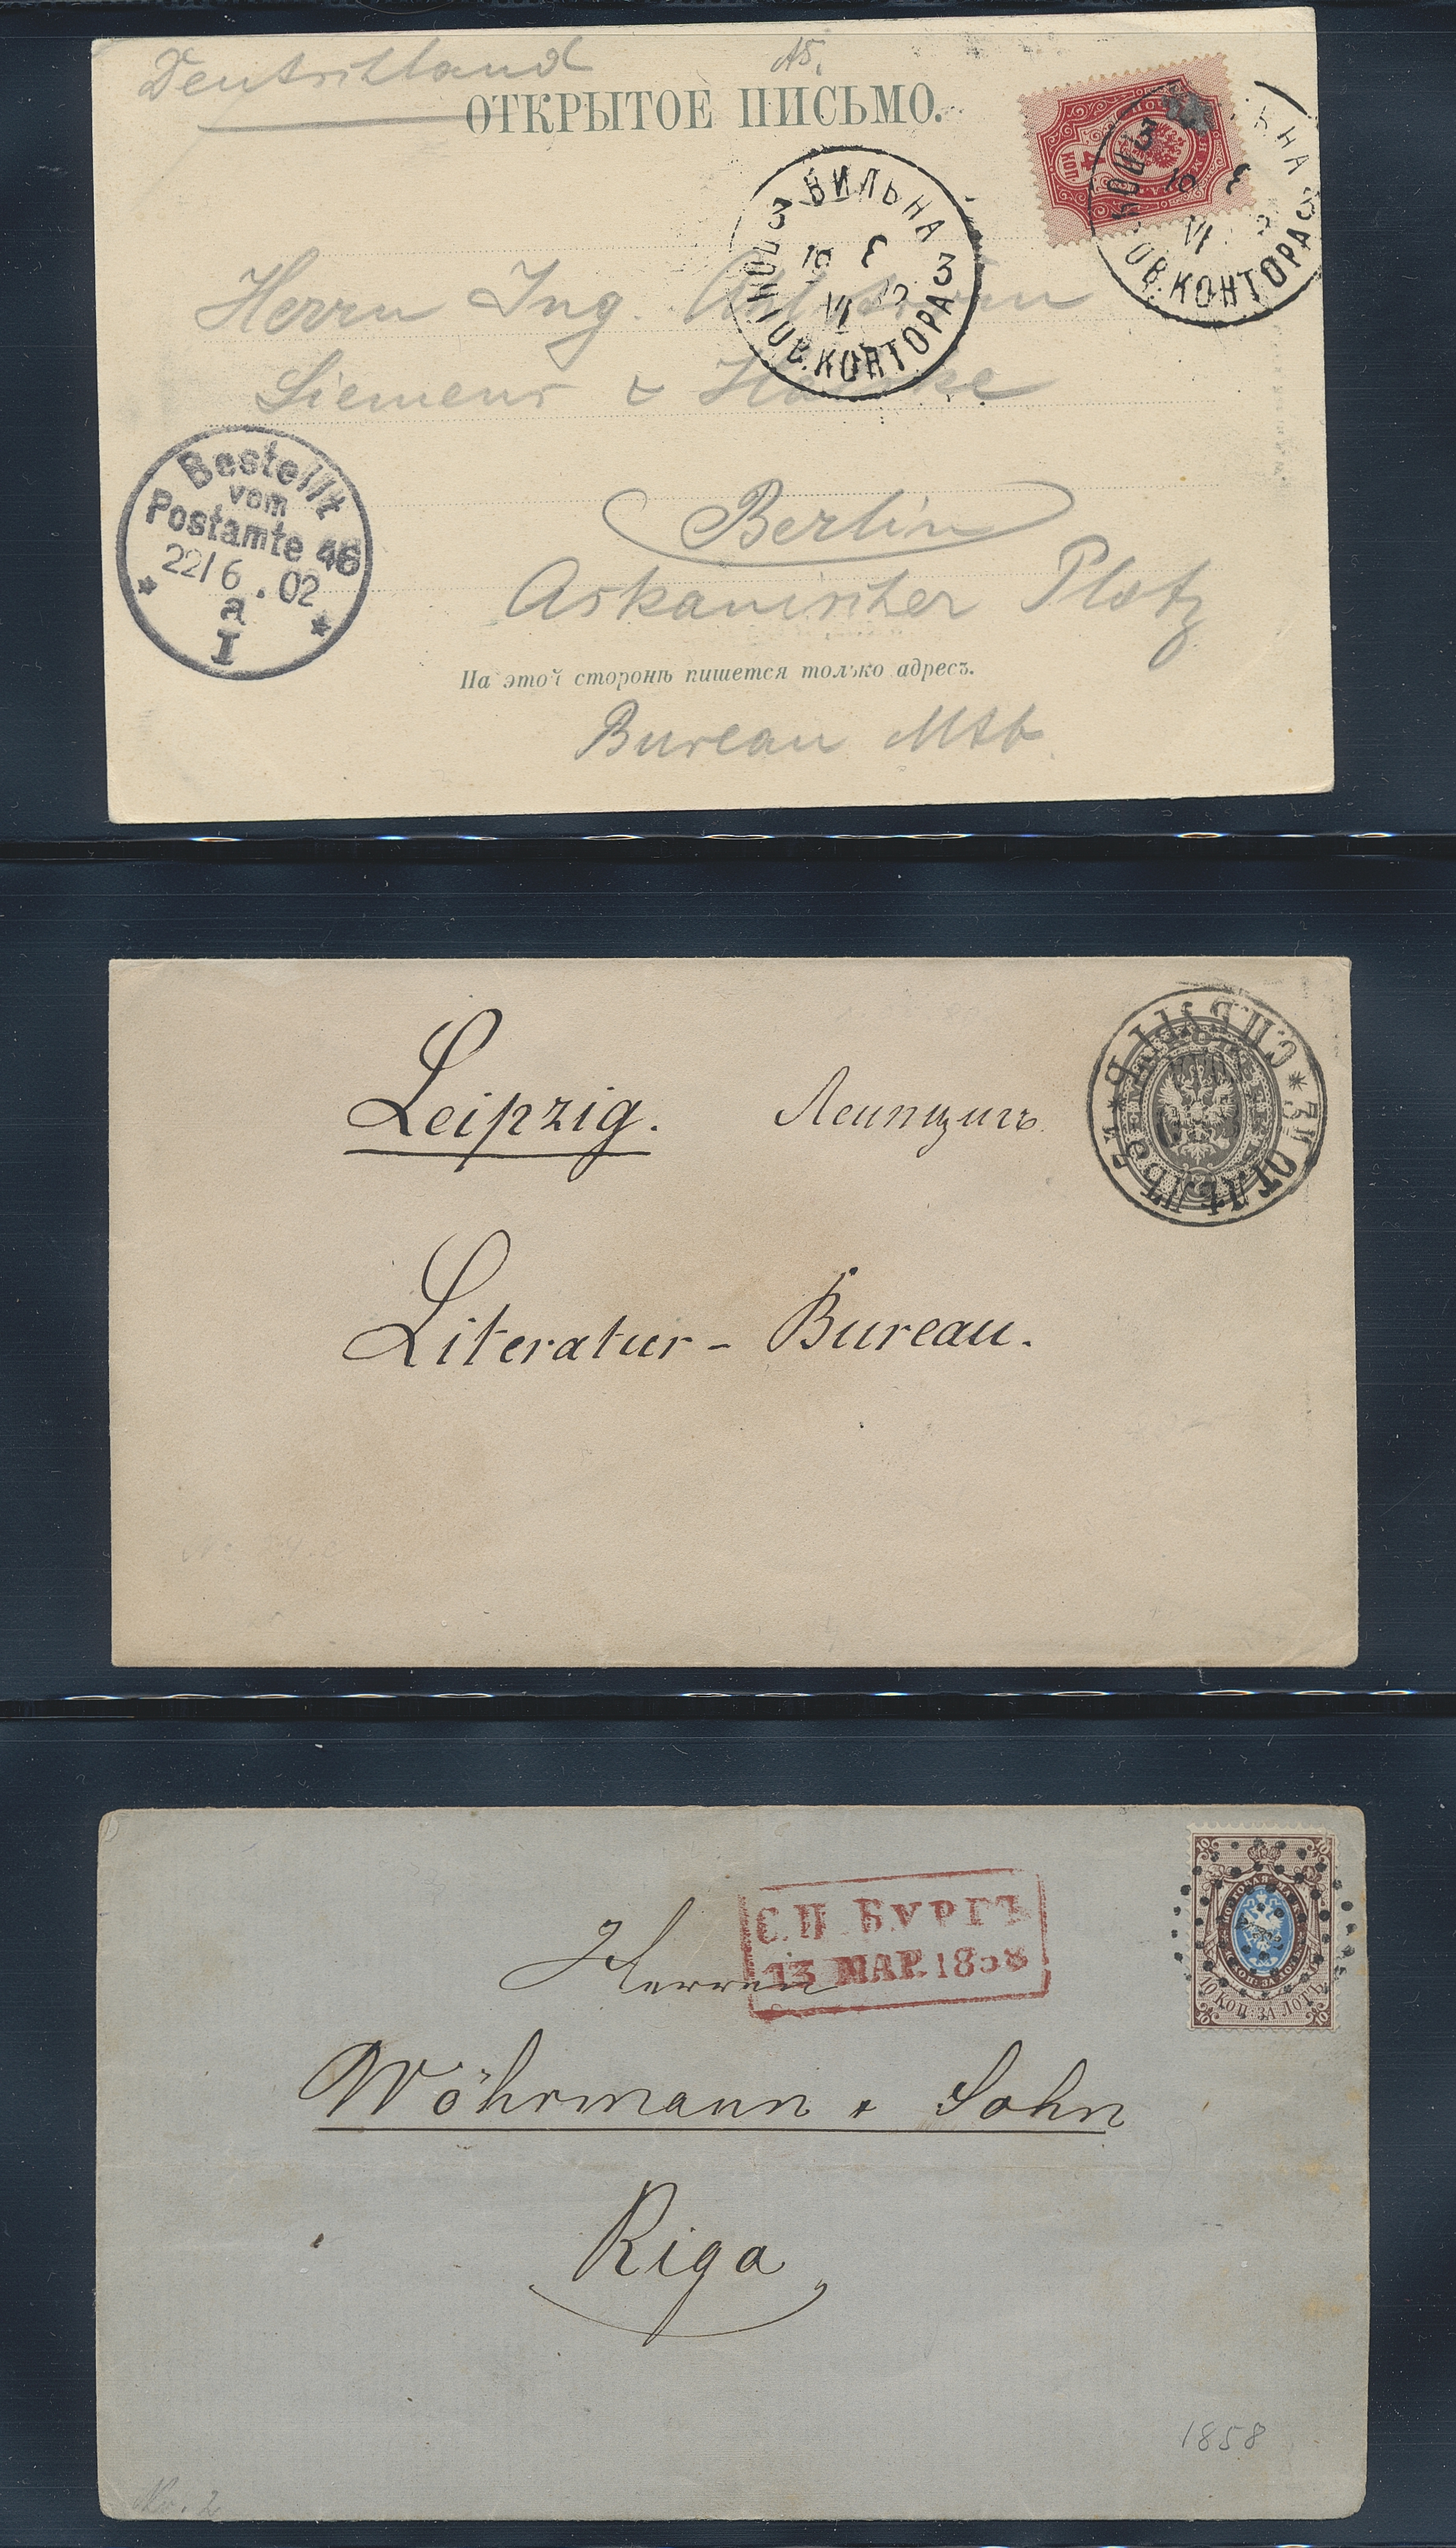 Deutschland
ОТКРЫТОЕ ПИСЬМО.
4
КОП.
ВИЛЬНА
3 3
10 VI
ПОЧ.ТОВ.КОНТОРА
Herrn Ing.
Siemens & Halske
Bestellt
vom
Postamte 46
22/6.02
a
I
Berlin
Askanischer Platz
На этой сторонѣ пишется только адресъ.
Bureau
Leipzig. Леипцигъ
Literatur-Bureau.
С.П.БУРГЪ
13 МАР.1858
10 КОП. ЗА ЛОТЪ
Herren
Wöhrmann & Sohn
Riga
1858
No. 2